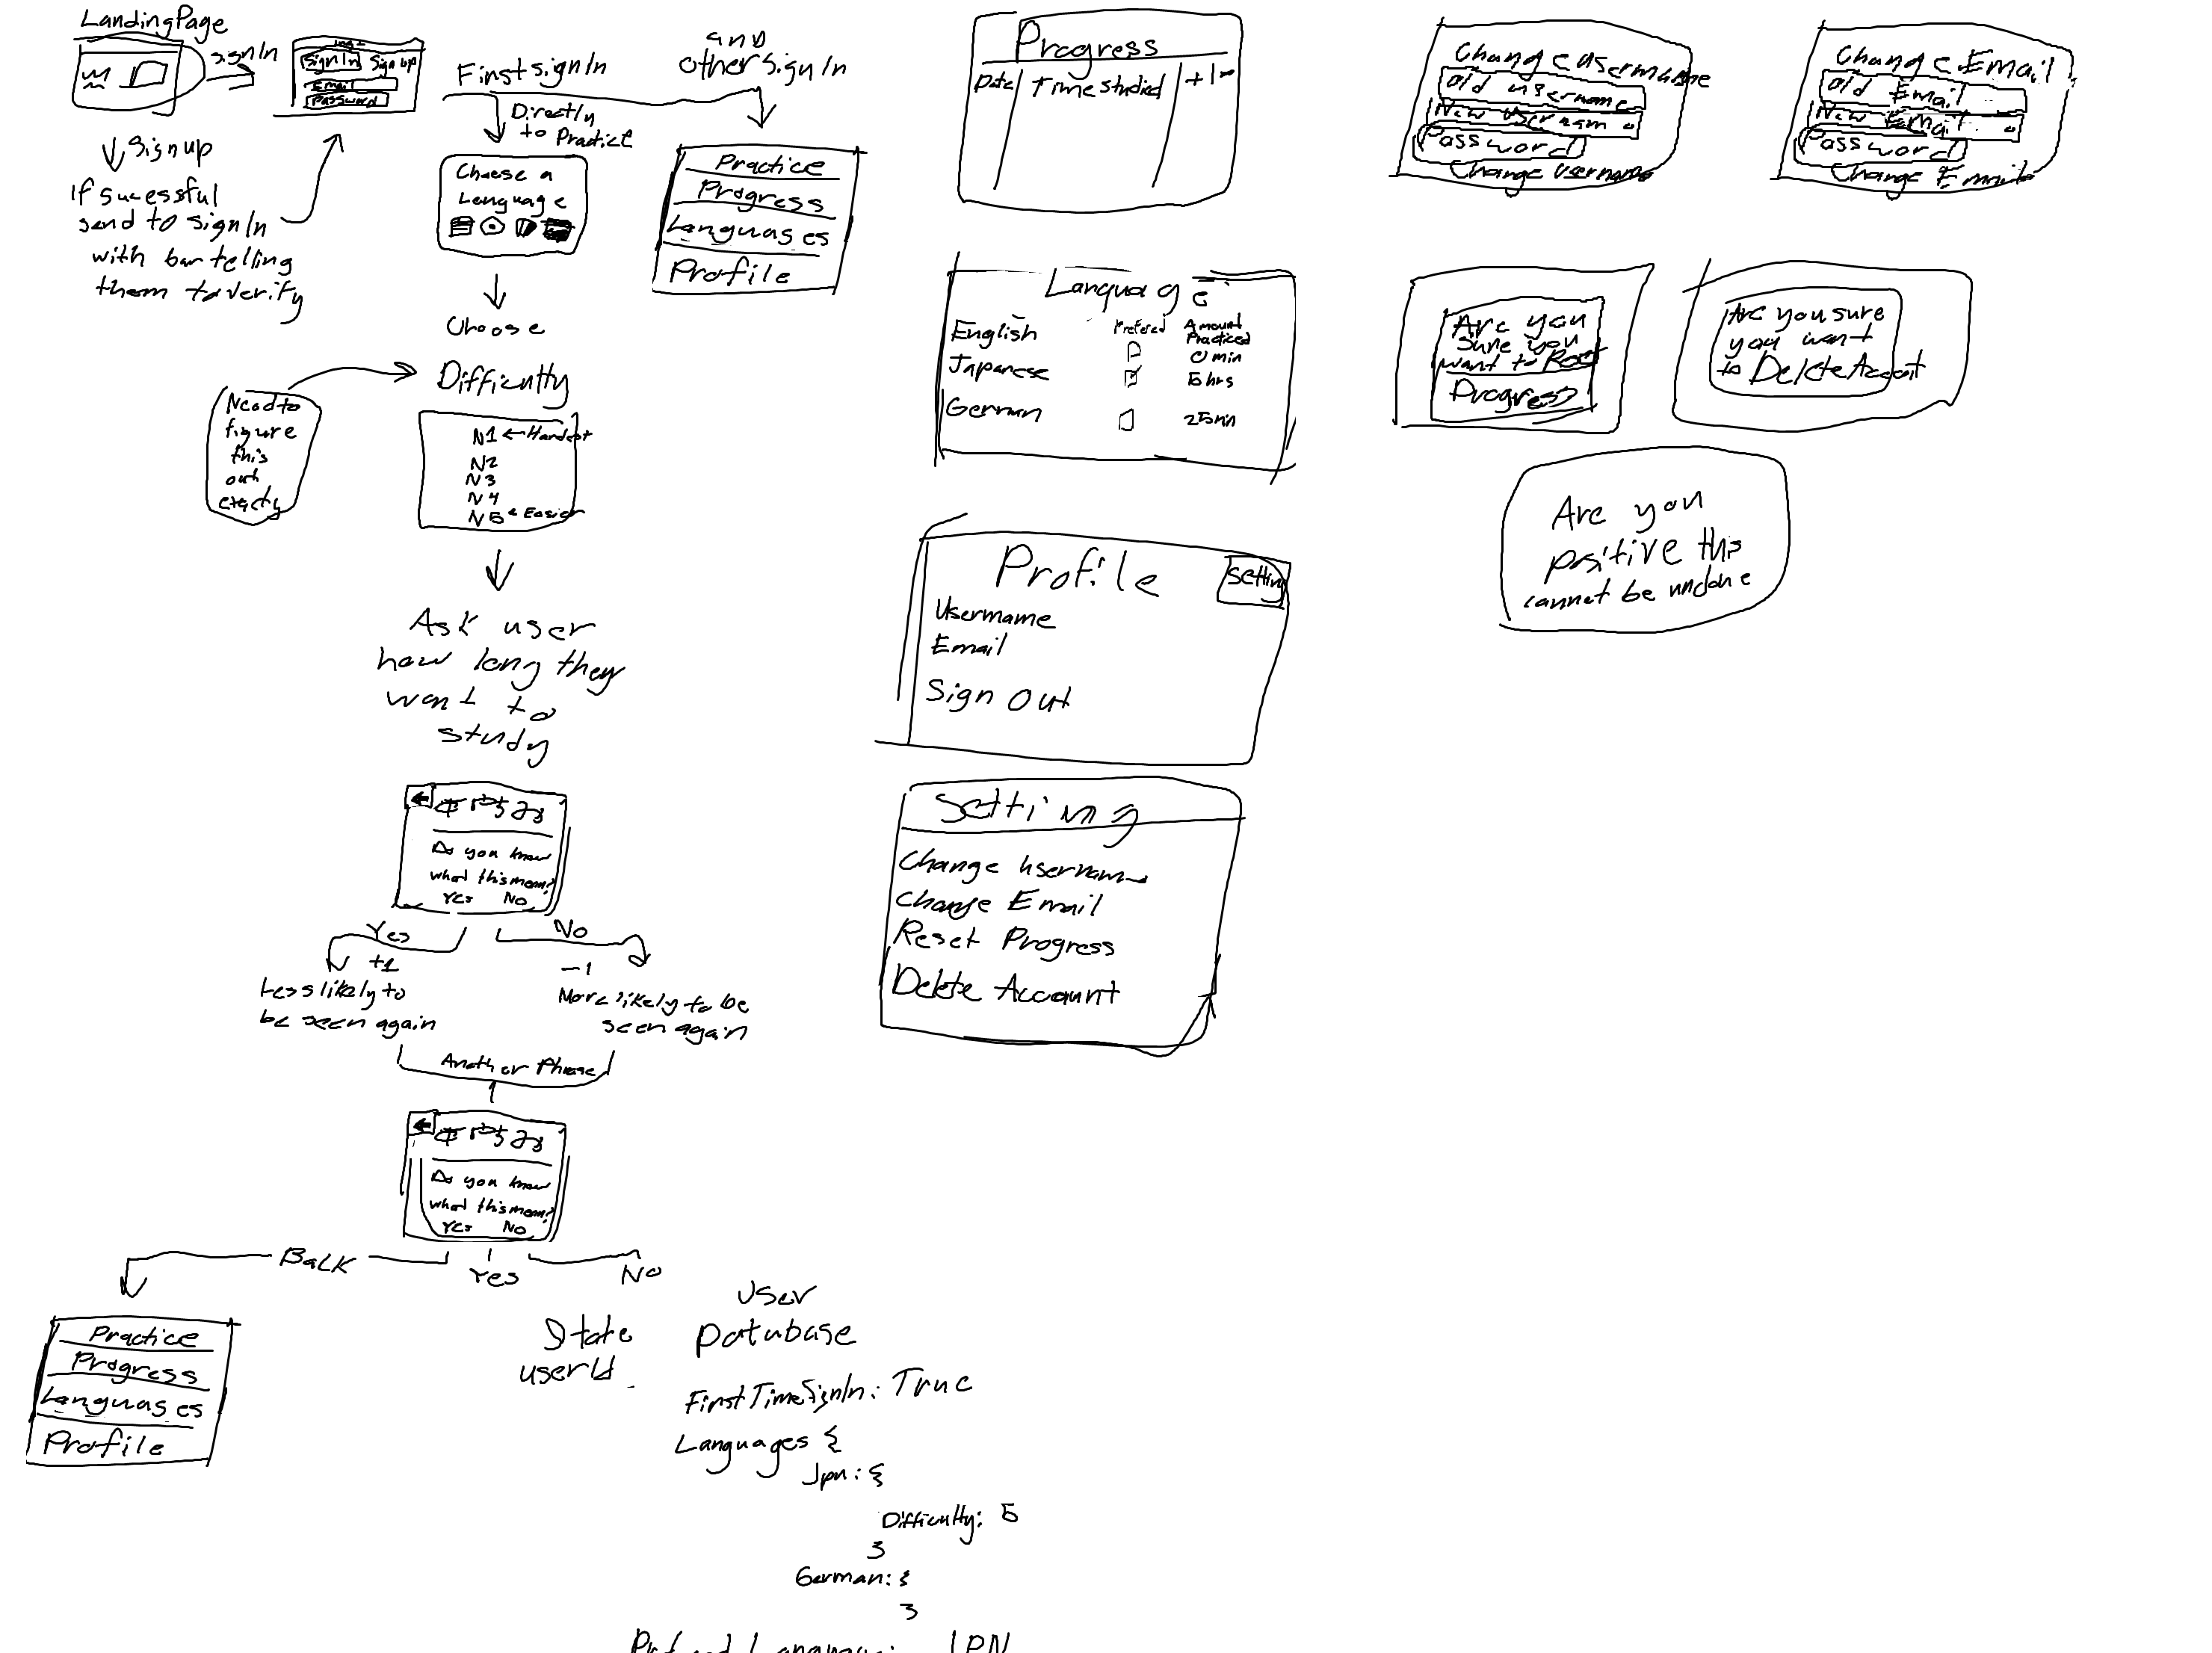 Landing Page
sign In
Sign In Sign up
Email
Password
Sign up
If sucessful
send to sign In
with bar telling
them to verify
First sign In
and
other sign In
Directly
to Practice
Choose a
Language
Practice
Progress
Languages
Profile
Choose
Difficulty
Need to
figure
this
out
exactly
N1 ← Hardest
N2
N3
N4
N5 ← Easier
Ask user
how long they
want to
study
Do you know
what this mean?
Yes No
Yes
+1
Less likely to
be seen again
No
-1
More likely to be
seen again
Another Phrase
Do you know
what this mean?
Yes No
Back
Yes
No
Practice
Progress
Languages
Profile
State
userId
User
Database
FirstTimeSignIn: True
Languages {
Jpn: {
Difficulty: 5
}
German: {
}
Language: JPN
Progress
Date Time studied + | -
Language
Prefered Amount
Practiced
English 0 min
Japanese 5 hrs
German 25 min
Profile
Setting
Username
Email
Sign Out
Setting
Change Username
Change Email
Reset Progress
Delete Account
Change Username
Old username
New Username
Password
Change Username
Change Email
Old Email
New Email
Password
Change Email
Are you
sure you
want to Reset
Progress
Are you sure
you want
to Delete Account
Are you
positive this
cannot be undone